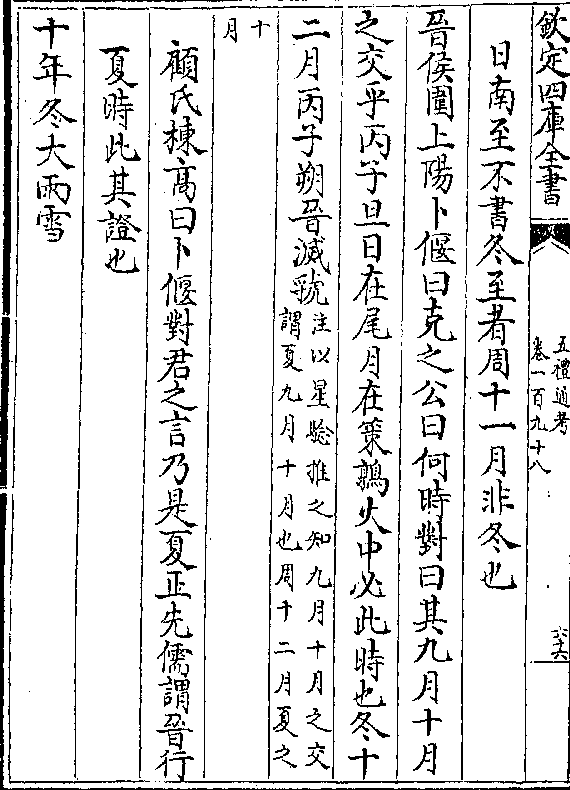 欽定四庫全書
五禮通考
卷一百九十八
日南至不書冬至者周十一月非冬也
晉侯圍上陽卜偃曰克之公曰何時對曰其九月十月
之交乎丙子旦日在尾月在策鶉火中必此時也冬十
二月丙子朔晉滅虢
注以星驗推之知九月十月之交
謂夏九月十月也周十二月夏之
十月
顧氏棟高曰卜偃對君之言乃是夏正先儒謂晉行
夏時此其證也
十年冬大雨雪